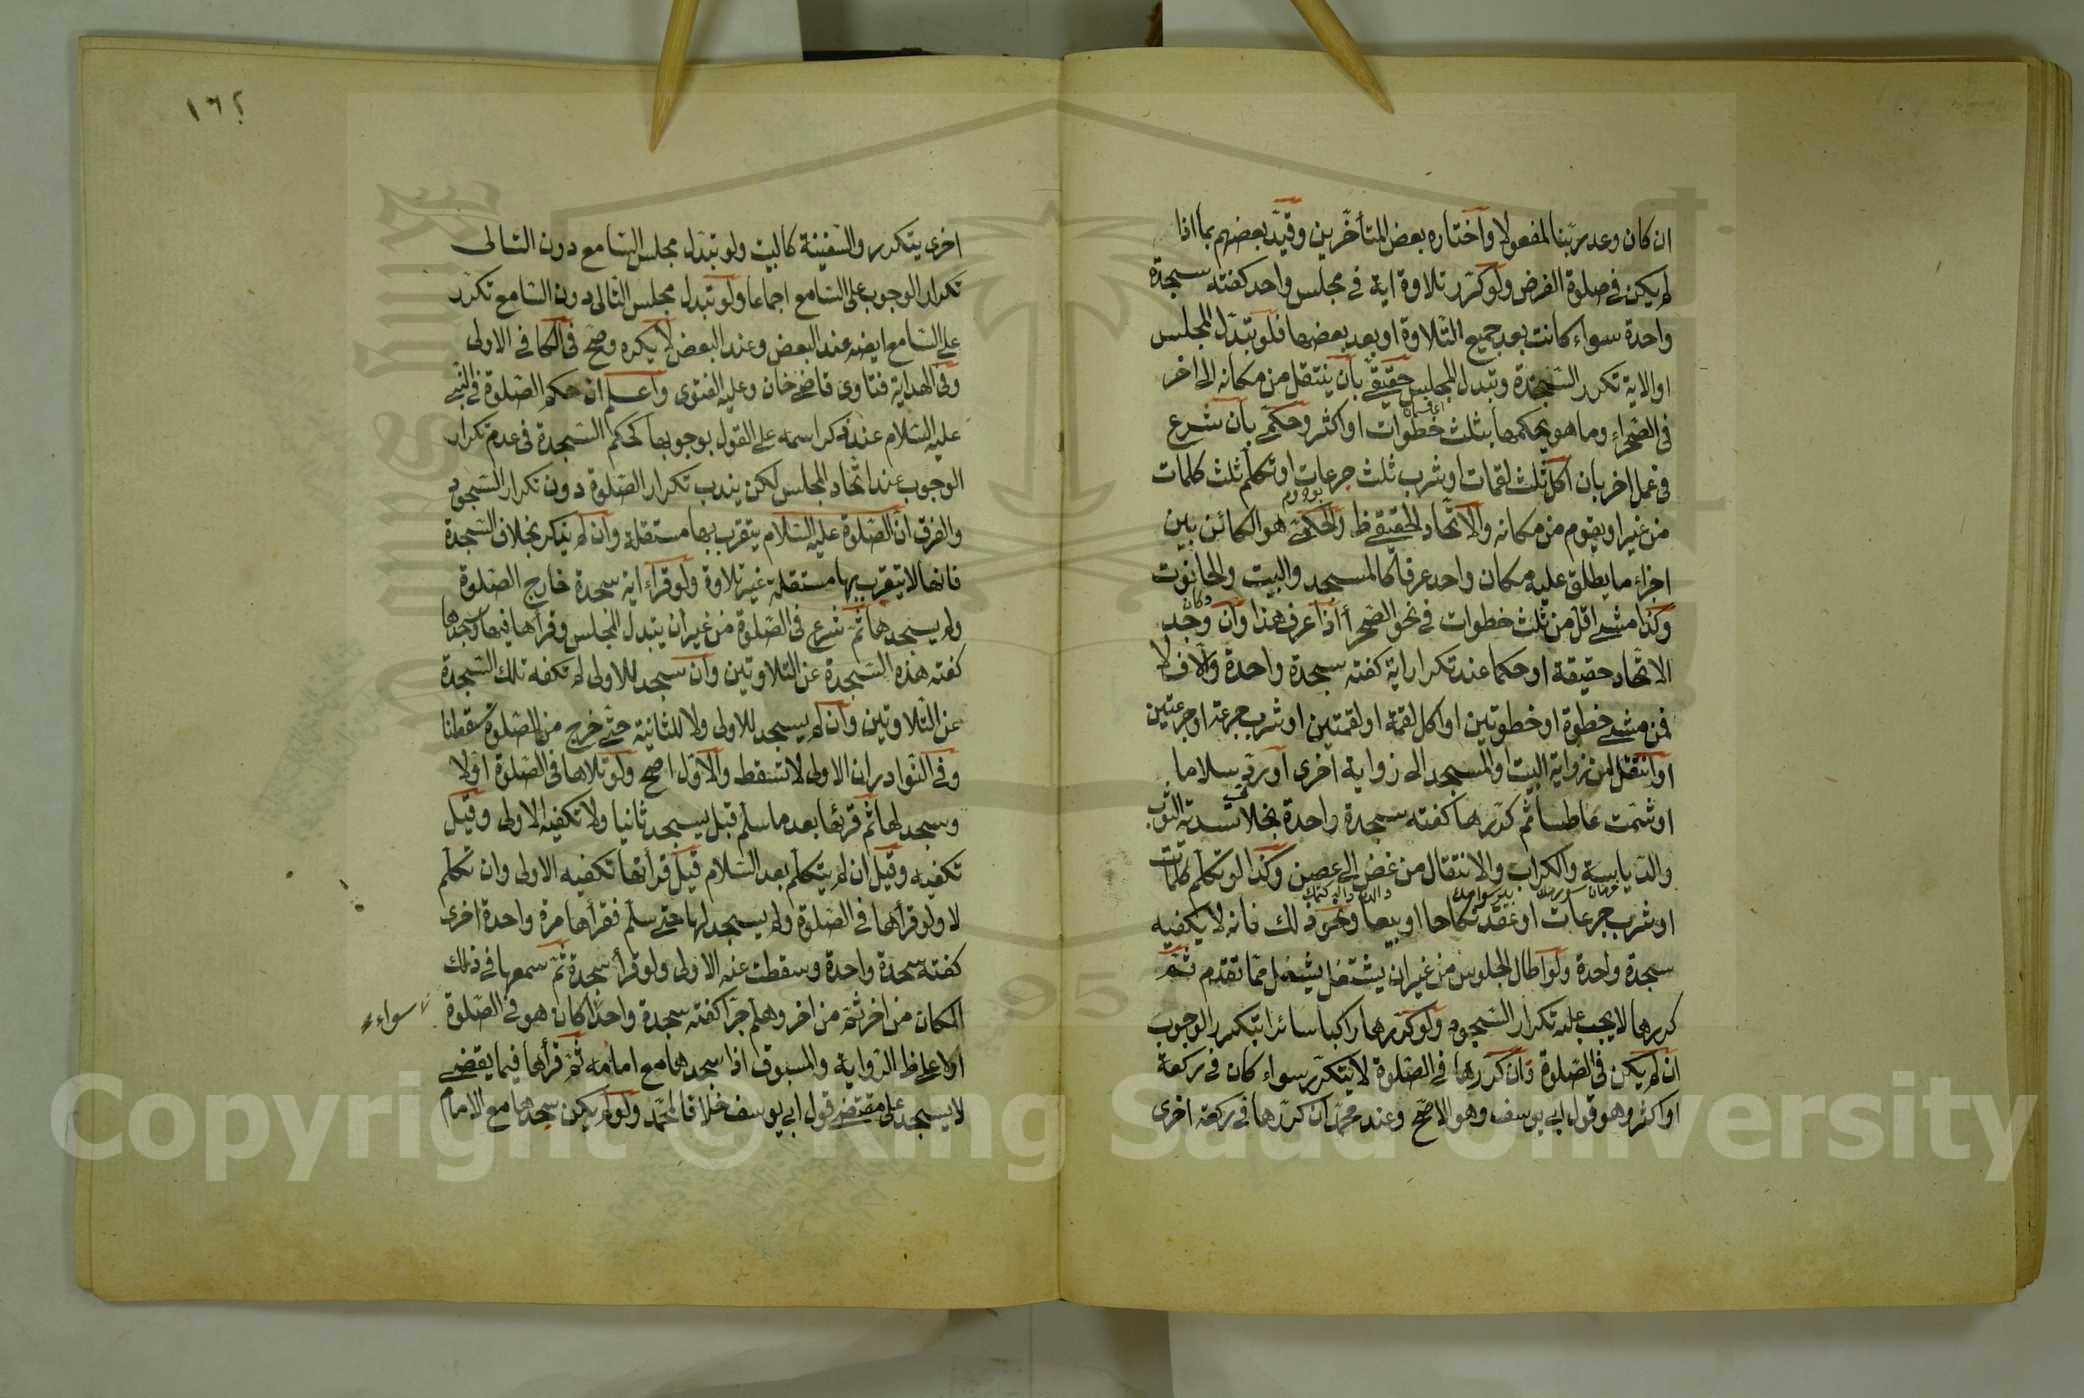 ان كان وعد ربنا لمفعولا واختاره بعض المتأخرين وقيد بعضهم بما اذا
لم يكن في صلوة الفرض ولو كرر تلاوة اية في مجلس واحد كفته سجدة
واحدة سواء كانت بعد جميع التلاوة او بعد بعضها فلو تبدل المجلس
او الاية تكرر السجدة وتبدل المجلس حقيقي بان ينتقل من مكانه الى اخر
في الصحراء وما هو بحكمها بثلث خطوات او اكثر وحكمي بان شرع
في عمل اخر بان اكل ثلث لقمات او شرب ثلث جرعات او تكلم ثلث كلمات
من غير او يقوم من مكانه والاتحاد الحقيقي ظ والحكمي هو الكائن بين
اجزاء ما يطلق عليه مكان واحد عرفا كالمسجد والبيت والحانوت
دكان
وكذا مشى اقل من ثلث خطوات في نحو الصحرأ اذا عرف هذا وان وجد
الاتحاد حقيقة او حكما عند تكرار اية كفته سجدة واحدة والا فلا
فمن مشى خطوة او خطوتين او اكل لقمة او لقمتين او شرب جرعة او جرعتين
او انتقل من زواية البيت والمسجد الى زواية اخرى او رد سلاما
او شمت عاطسا ثم كررها كفته سجدة واحدة بخلاف تسدية الثوب
والدياسة والكراب والانتقال من غصن الى غصن وكذا لو تكلم كلمات
او شرب جرعات او عقد نكاحا او بيعا ونحو ذلك فانه لا يكفيه
سجدة واحدة ولو اطال الجلوس من غير ان يشتغل بشغل مما تقدم ثم
كررها لا يجب عليه تكرار السجود ولو كررها راكبا سائرا يتكرر الوجوب
ان لم يكن في الصلوة وان كررها في الصلوة لا يتكرر سواء كان في ركعة
او اكثر وهو قول ابي يوسف وهو الاصح وعند محمد ان كررها في ركعة اخرى
١٦٤
اخرى يتكرر والسفينة كالبيت ولو تبدل مجلس السامع دون التالى
تكرار الوجوب على السامع اجماعا ولو تبدل مجلس التالى دون السامع تكرر
على السامع ايضه عند البعض وعند البعض لا يكره وصح في الكافي الاولى
وفي الهداية فتاوى قاضي خان وعليه الفتوى واعلم ان حكم الصلوة في النبي
عليه السلام عند ذكر اسمه على القول بوجوبها كحكم السجدة في عدم تكرار
الوجوب عند اتحاد المجلس لكن يندب تكرار الصلوة دون تكرار السجود
والفرق ان الصلوة عليه السلام يتقرب بها مستقلة وان لم يذكر بخلاف السجدة
فانها لا يتقرب بها مستقلة غير تلاوة ولو قرأ اية سجدة خارج الصلوة
ولم يسجدها ثم شرع في الصلوة من غير ان يتبدل المجلس وقرأها فيها وسجدها
كفته هذه السجدة عن التلاوتين وان سجد للاولى لم تكفه تلك السجدة
عن التلاوتين وان لم يسجد للاولى ولا للثانية حتى خرج من الصلوة سقطتا
وفي النوادر ان الاولى لا تسقط والاول اصح ولو تلاها في الصلوة اولا
وسجد لها ثم قرئها بعد ما سلم قبل يسجد ثانيا ولا تكفيه الاولى وقيل
تكفيه وقيل ان لم يتكلم بعد السلام قبل قرأتها تكفيه الاولى وان تكلم
لا ولو قرأها في الصلوة ولم يسجد لها حتى سلم فقرأها مرة واحدة اخرى
كفته سجدة واحدة وسقطت عنه الاولى ولو قرأ سجدة ثم سمعها في ذلك
المكان من اخر ثم من اخر وهلم جرا كفته سجدة واحدا كان هو في الصلوة
سواء
اولا على ظ الرواية والمسبوق اذا سجدها مع امامه ثم قرأها فيما يقضي
لا يسجد على مقتضى قول ابي يوسف خلافا لمحمد ولو لم يكن سجدها مع الامام
Copyright © King Saud University